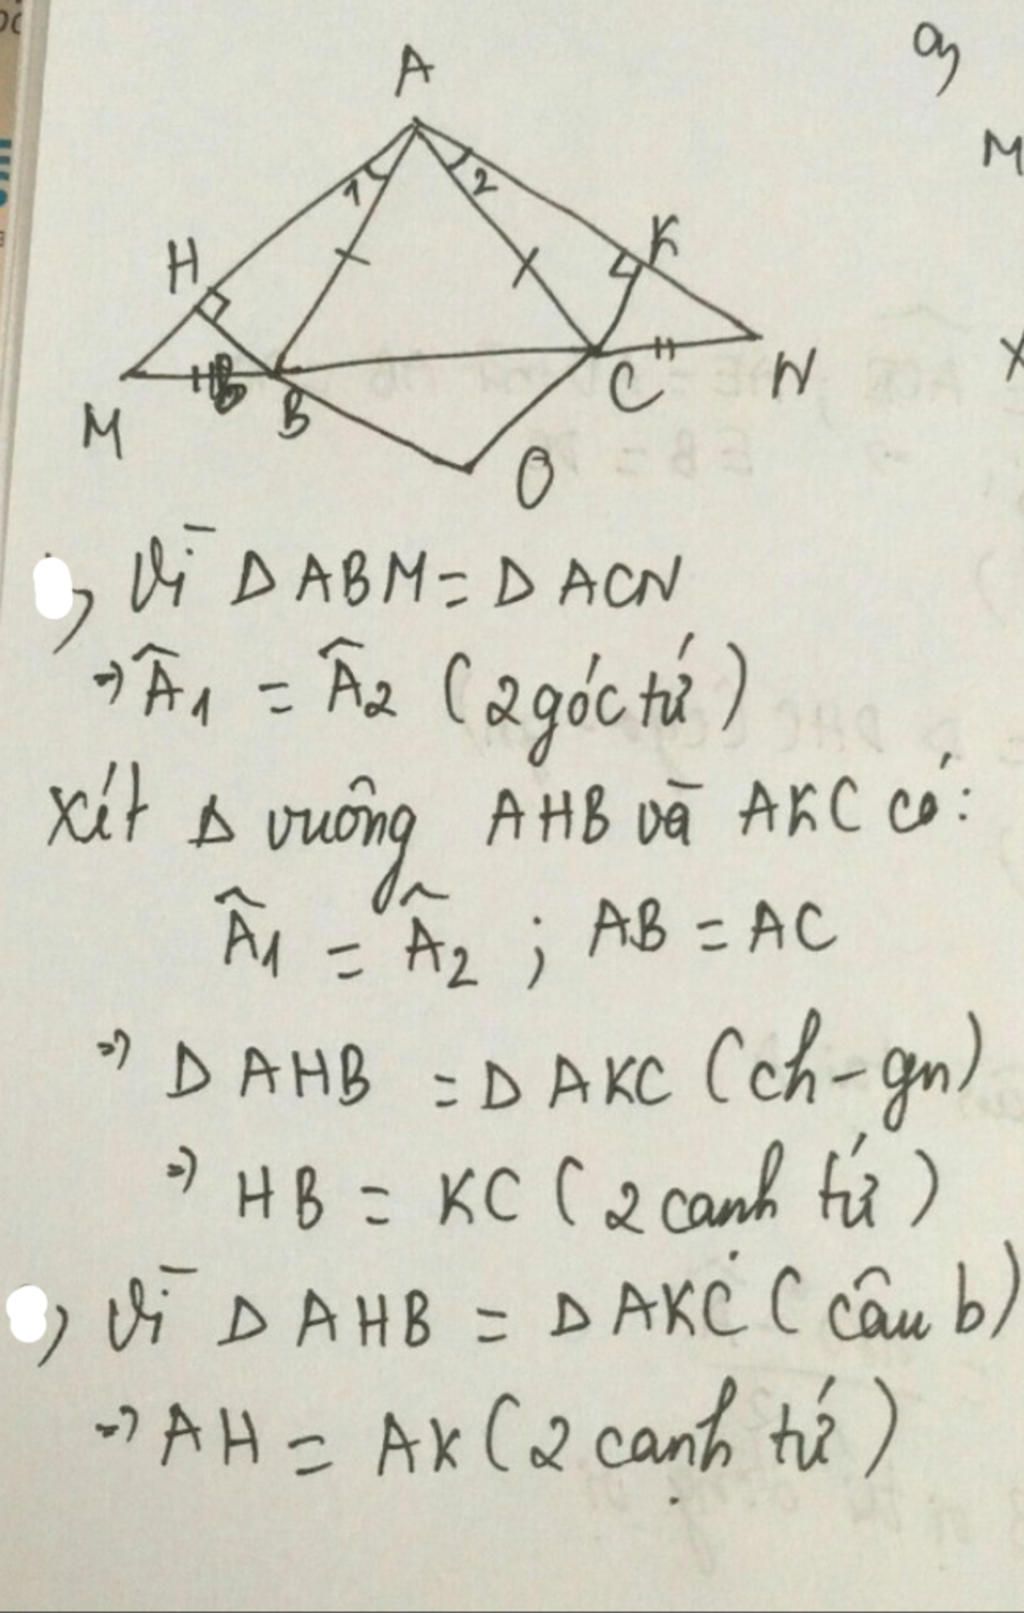 a,
A
M
1
2
H
K
X
B
M
B
C
N
O
, Vì Δ ABM = Δ ACN
=> Â1 = Â2 (2 góc tứ)
Xét Δ vuông AHB và AKC có:
Â1 = Â2 ; AB = AC
=> Δ AHB = Δ AKC (ch-gn)
=> HB = KC (2 cạnh tứ)
, Vì Δ AHB = Δ AKC (câu b)
=> AH = AK (2 cạnh tứ)